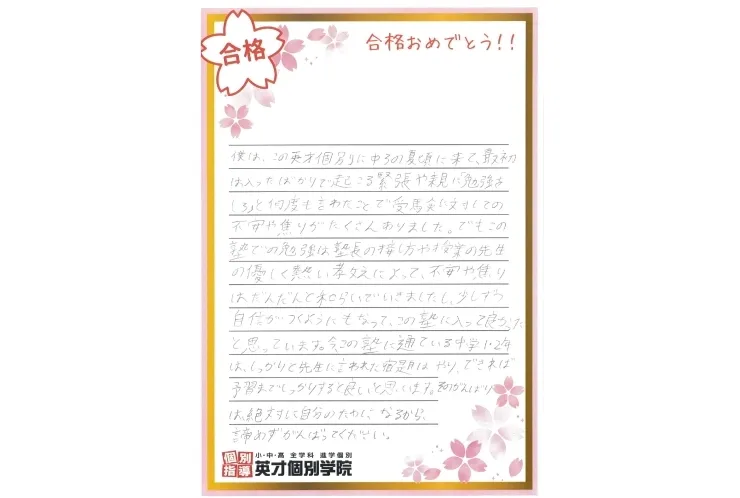 合格
合格おめでとう!!
僕は、この英才個別に中3の夏頃に来て、最初
は入ったばかりで起こる緊張や親に「勉強し
ろ」と何度も言われたことで受験に対しての
不安や焦りがたくさんありました。でもこの
塾での勉強は塾長の接し方や授業の先生
の優しく熱い教えによって、不安や焦り
はだんだんと和らいでいきましたし、少しずつ
自信がつくようにもなって、この塾に入って良かった
と思っています。今この塾に通っている中学1・2年
は、しっかりと先生に言われた宿題はやり、できれば
予習までしっかりすると良いと思います。そのがんばり
は、絶対に自分のためになるから、
諦めずがんばってください。
個別指導
小・中・高 全学科 進学個別
英才個別学院